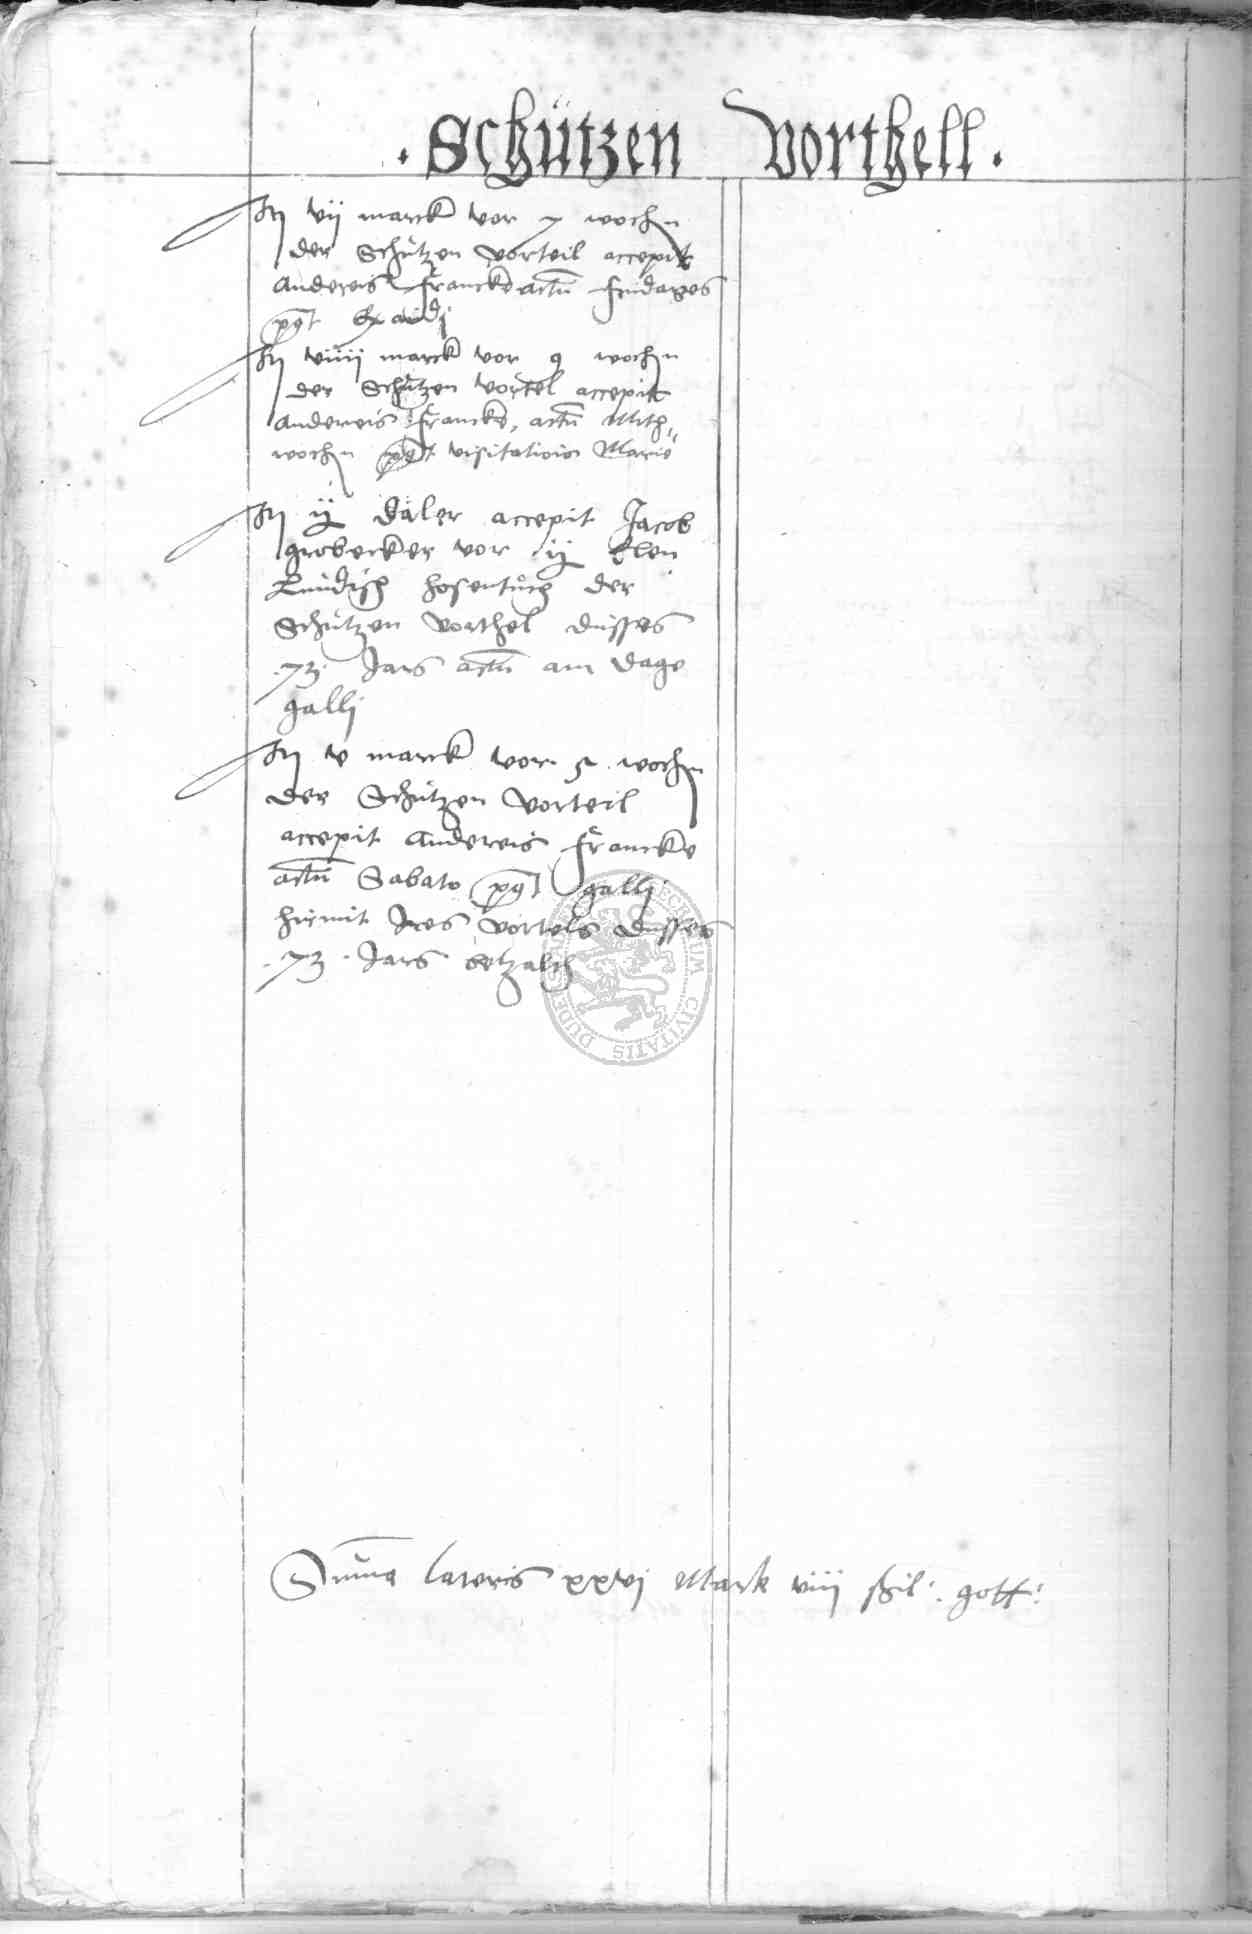 . Schützen Vorthell .
It vij marck vor 7 wochen
der Schützen Vorteil accepit
Andereis Francke actum fridages
post Exaudi
It viiij marck vor 9 wochen
der Schützen Vortel accepit
Andereis Francke, actum Mith„
wochen post visitationis Marie
It ij daler accepit Jacob
grobecker vor ij Elen
Lundisch hosentuch der
Schützen Vorthel dusses
.73. Jars actum am dage
galli
It v marck vor 5 wochen
der Schützen Vorteil
accepit Andereis Francke
actum Sabato post galli
hirmit Ires Vortels dusses
.73. Jars betzalt
Summa lateris xxvj Mark viij ßil: gott:
CIVITATIS DUDERSTAD